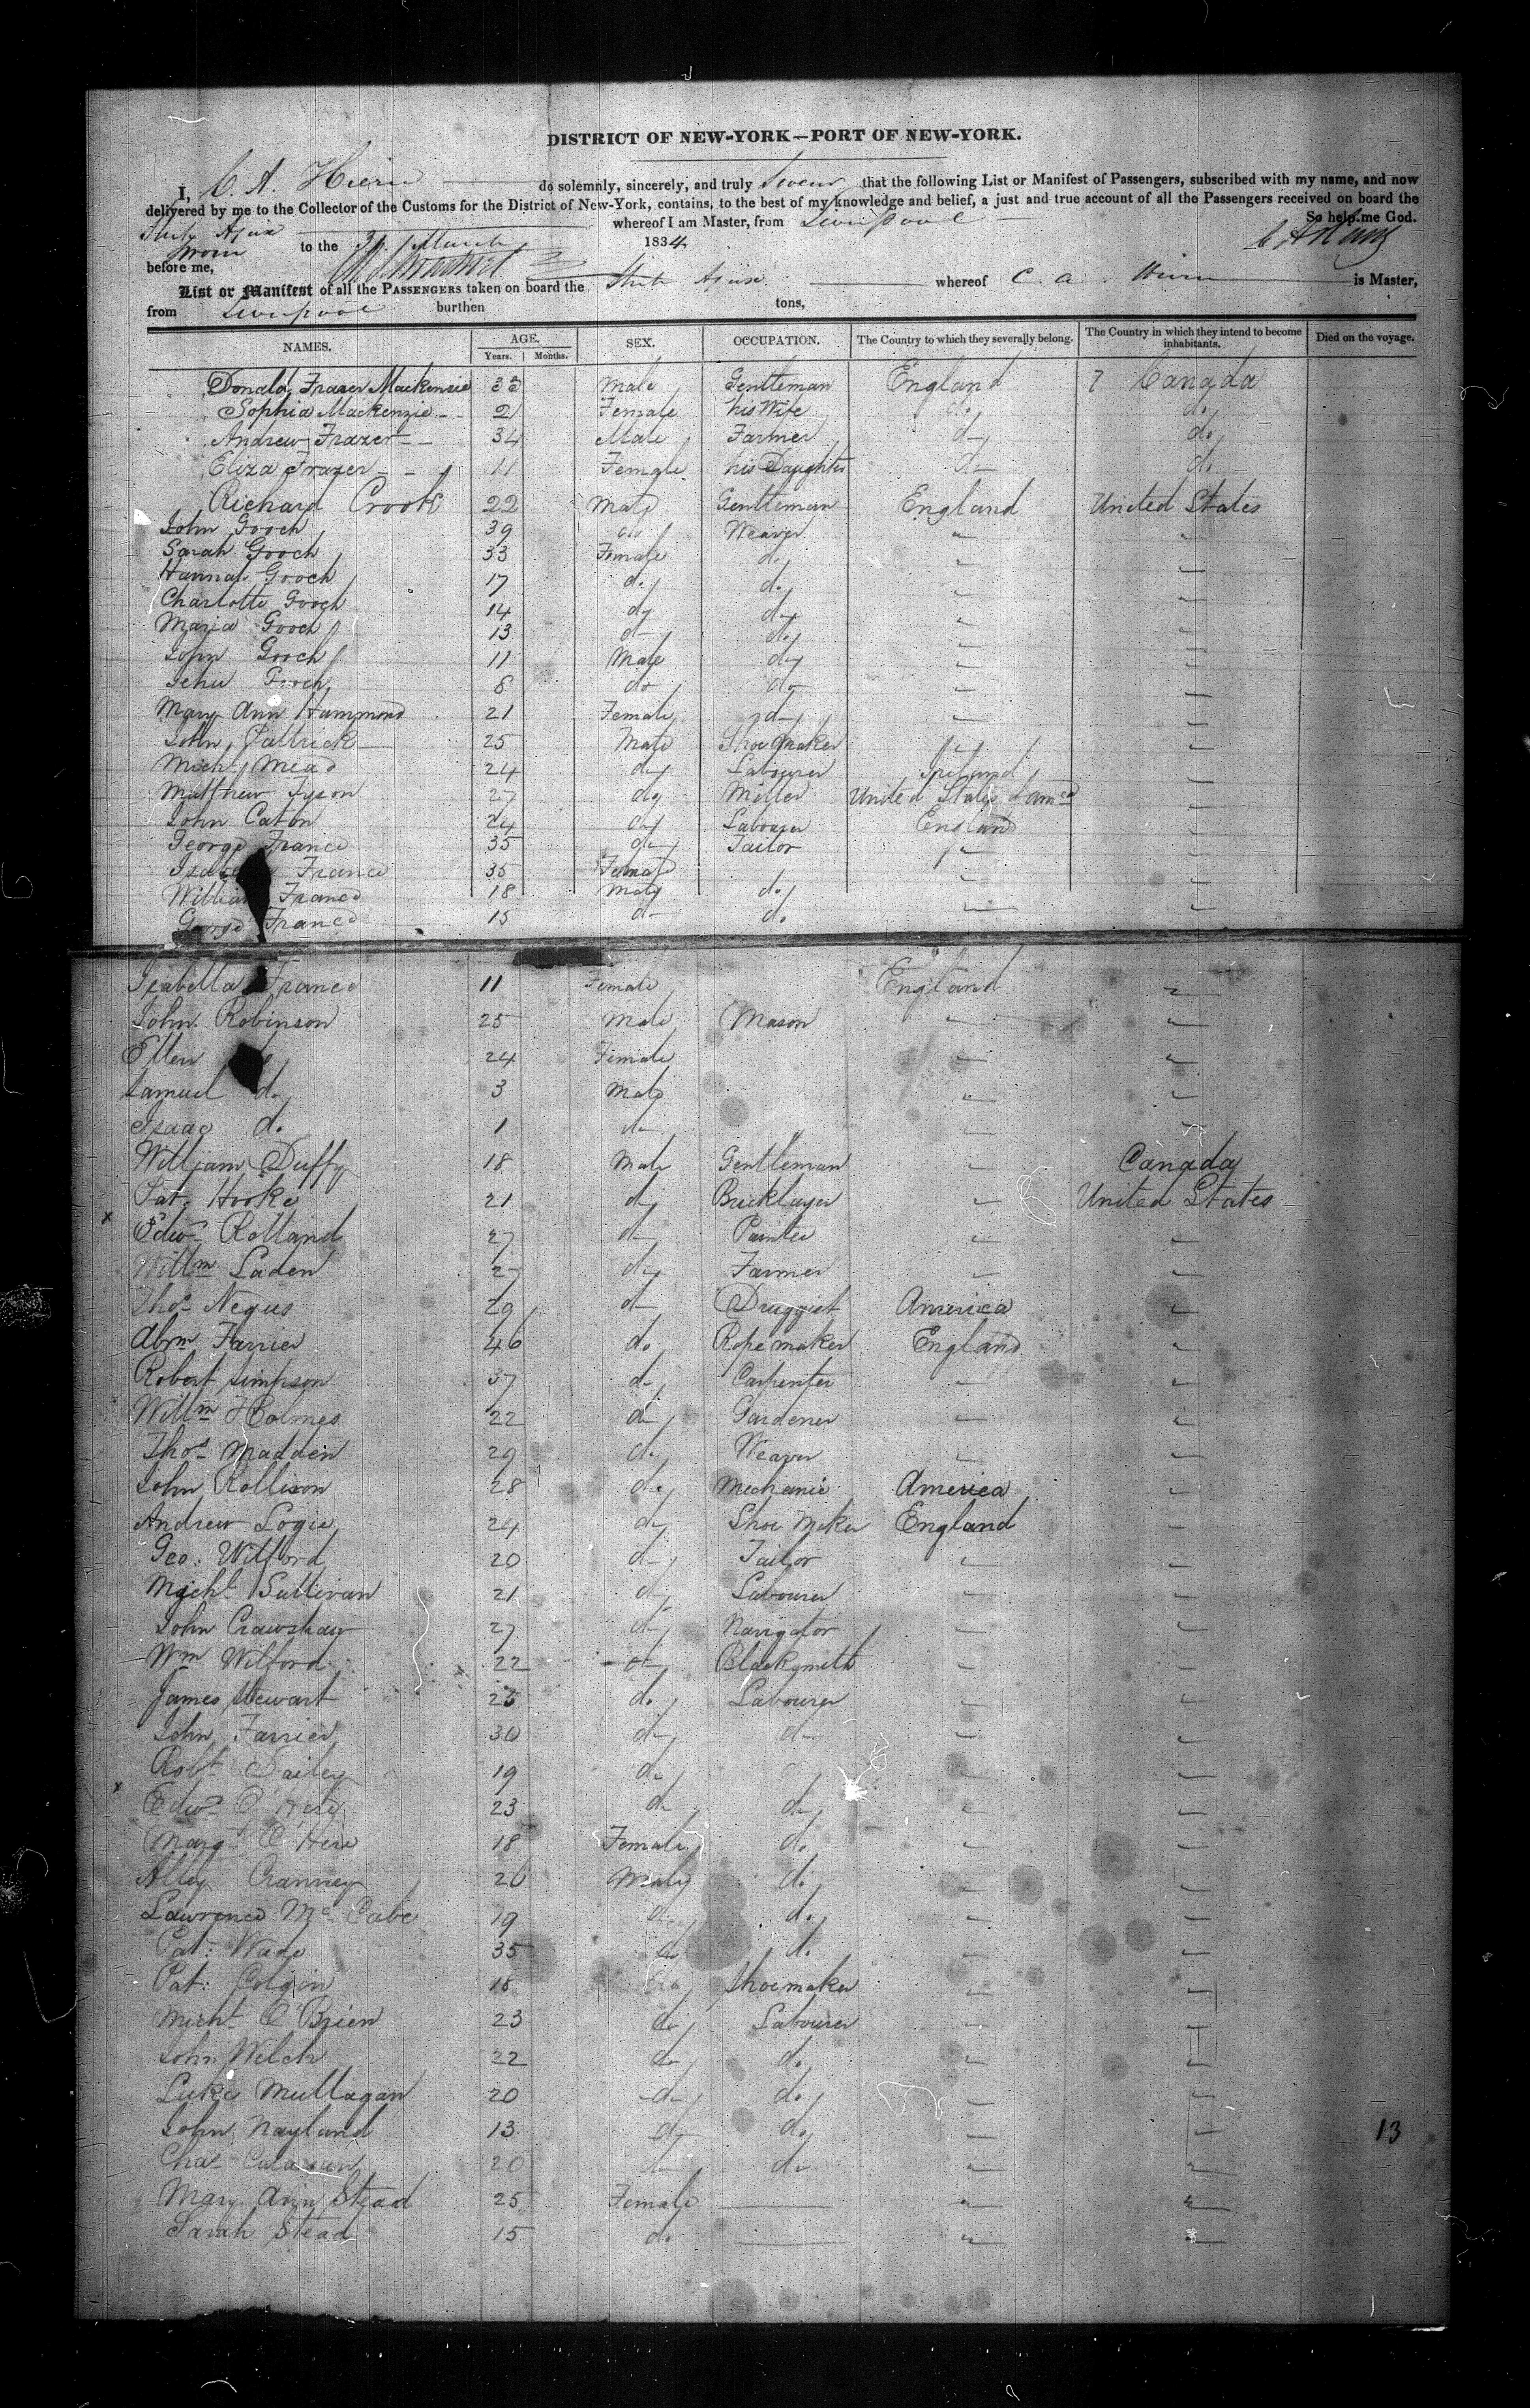 DISTRICT OF NEW-YORK—PORT OF NEW-YORK.
I, C. A. Hiern do solemnly, sincerely, and truly swear that the following List or Manifest of Passengers, subscribed with my name, and now
delivered by me to the Collector of the Customs for the District of New-York, contains, to the best of my knowledge and belief, a just and true account of all the Passengers received on board the
Ship Ajax whereof I am Master, from Liverpool So help me God.
Sworn to the 31 March 1834.
before me,
List or Manifest of all the PASSENGERS taken on board the Ship Ajax whereof C. A. Hiern is Master,
from Liverpool burthen tons,
NAMES. AGE. SEX. OCCUPATION. The Country to which they severally belong. The Country in which they intend to become inhabitants. Died on the voyage.
Years. Months.
Donald Frazer Mackenzie 33 Male Gentleman England Canada
Sophia Mackenzie 21 Female his Wife do do
Andrew Frazer 34 Male Farmer do do
Eliza Frazer 11 Female his Daughter do do
Richard Crook 22 Male Gentleman England United States
John Gooch 39 do Weaver " "
Sarah Gooch 33 Female do " "
Hannah Gooch 17 do do " "
Charlotte Gooch 14 do do " "
Maria Gooch 13 do do " "
John Gooch 11 Male do " "
Jehu Gooch 8 do do " "
Mary Ann Hammond 21 Female do " "
John Pattrick 25 Male Shoe Maker " "
Mich Mead 24 do Labourer Ireland "
Matthew Tyson 27 do Miller United States of Amca "
John Caton 24 do Labourer England "
George France 35 do Tailor " "
France 35 Female " "
William France 18 Male do " "
George France 15 do do
Isabella France 11 Female England "
John Robinson 25 Male Mason " "
Ellen 24 Female " "
Samuel do 3 Male " "
Isaac do 1 do " "
William Duffy 18 Male Gentleman " Canada
Pat. Hooke 21 do Bricklayer " United States
Edwd Rolland 27 do Painter " "
Willm Laden 27 do Farmer " "
Thos Negus 29 do Druggist America "
Abrm Farrier 46 do Ropemaker England "
Robert Simpson 37 do Carpenter " "
Willm Holmes 22 do Gardener " "
Thos Madden 29 do Weaver " "
John Rollison 28 do Mechanic America "
Andrew Logie 24 do Shoe Maker England "
Geo: Wilford 20 do Tailor " "
Michl Sullivan 21 do Labourer " "
John Crawshaw 27 do Navigator " "
Wm Wilford 22 do Blacksmith " "
James Stewart 25 do Labourer " "
John Farrier 30 do do " "
Robt Dailey 19 do " "
Edwd O'Here 23 do do " "
Margt O'Here 18 Female do " "
Alley Cranney 26 Male do " "
Lawrence McCabe 19 do do " "
Pat: Wade 35 do do " "
Pat: Colgin 18 do Shoemaker " "
Michl O'Brien 23 do Labourer " "
John Welch 22 do do " "
Luke Mullagan 20 do do " "
John Nayland 13 do do " "
Chas 20 do do " "
Mary Ann Stead 25 Female " "
Sarah Stead 15 do " "
13